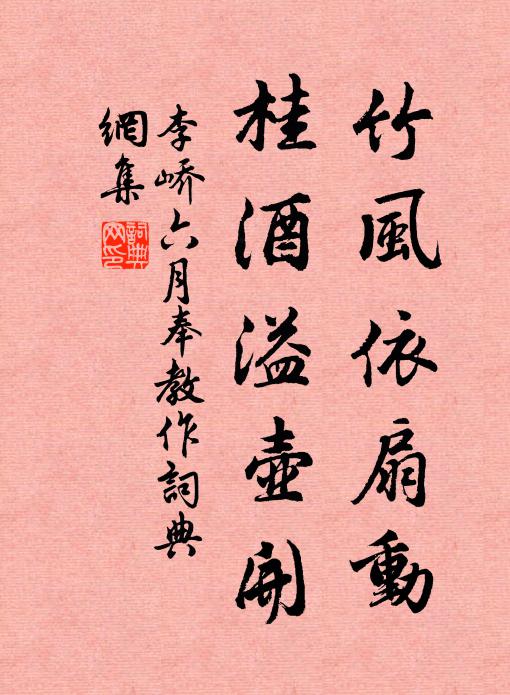 竹風依扇動
桂酒溢壺開
李嶠六月奉教作詞典
網集
詞典
网印